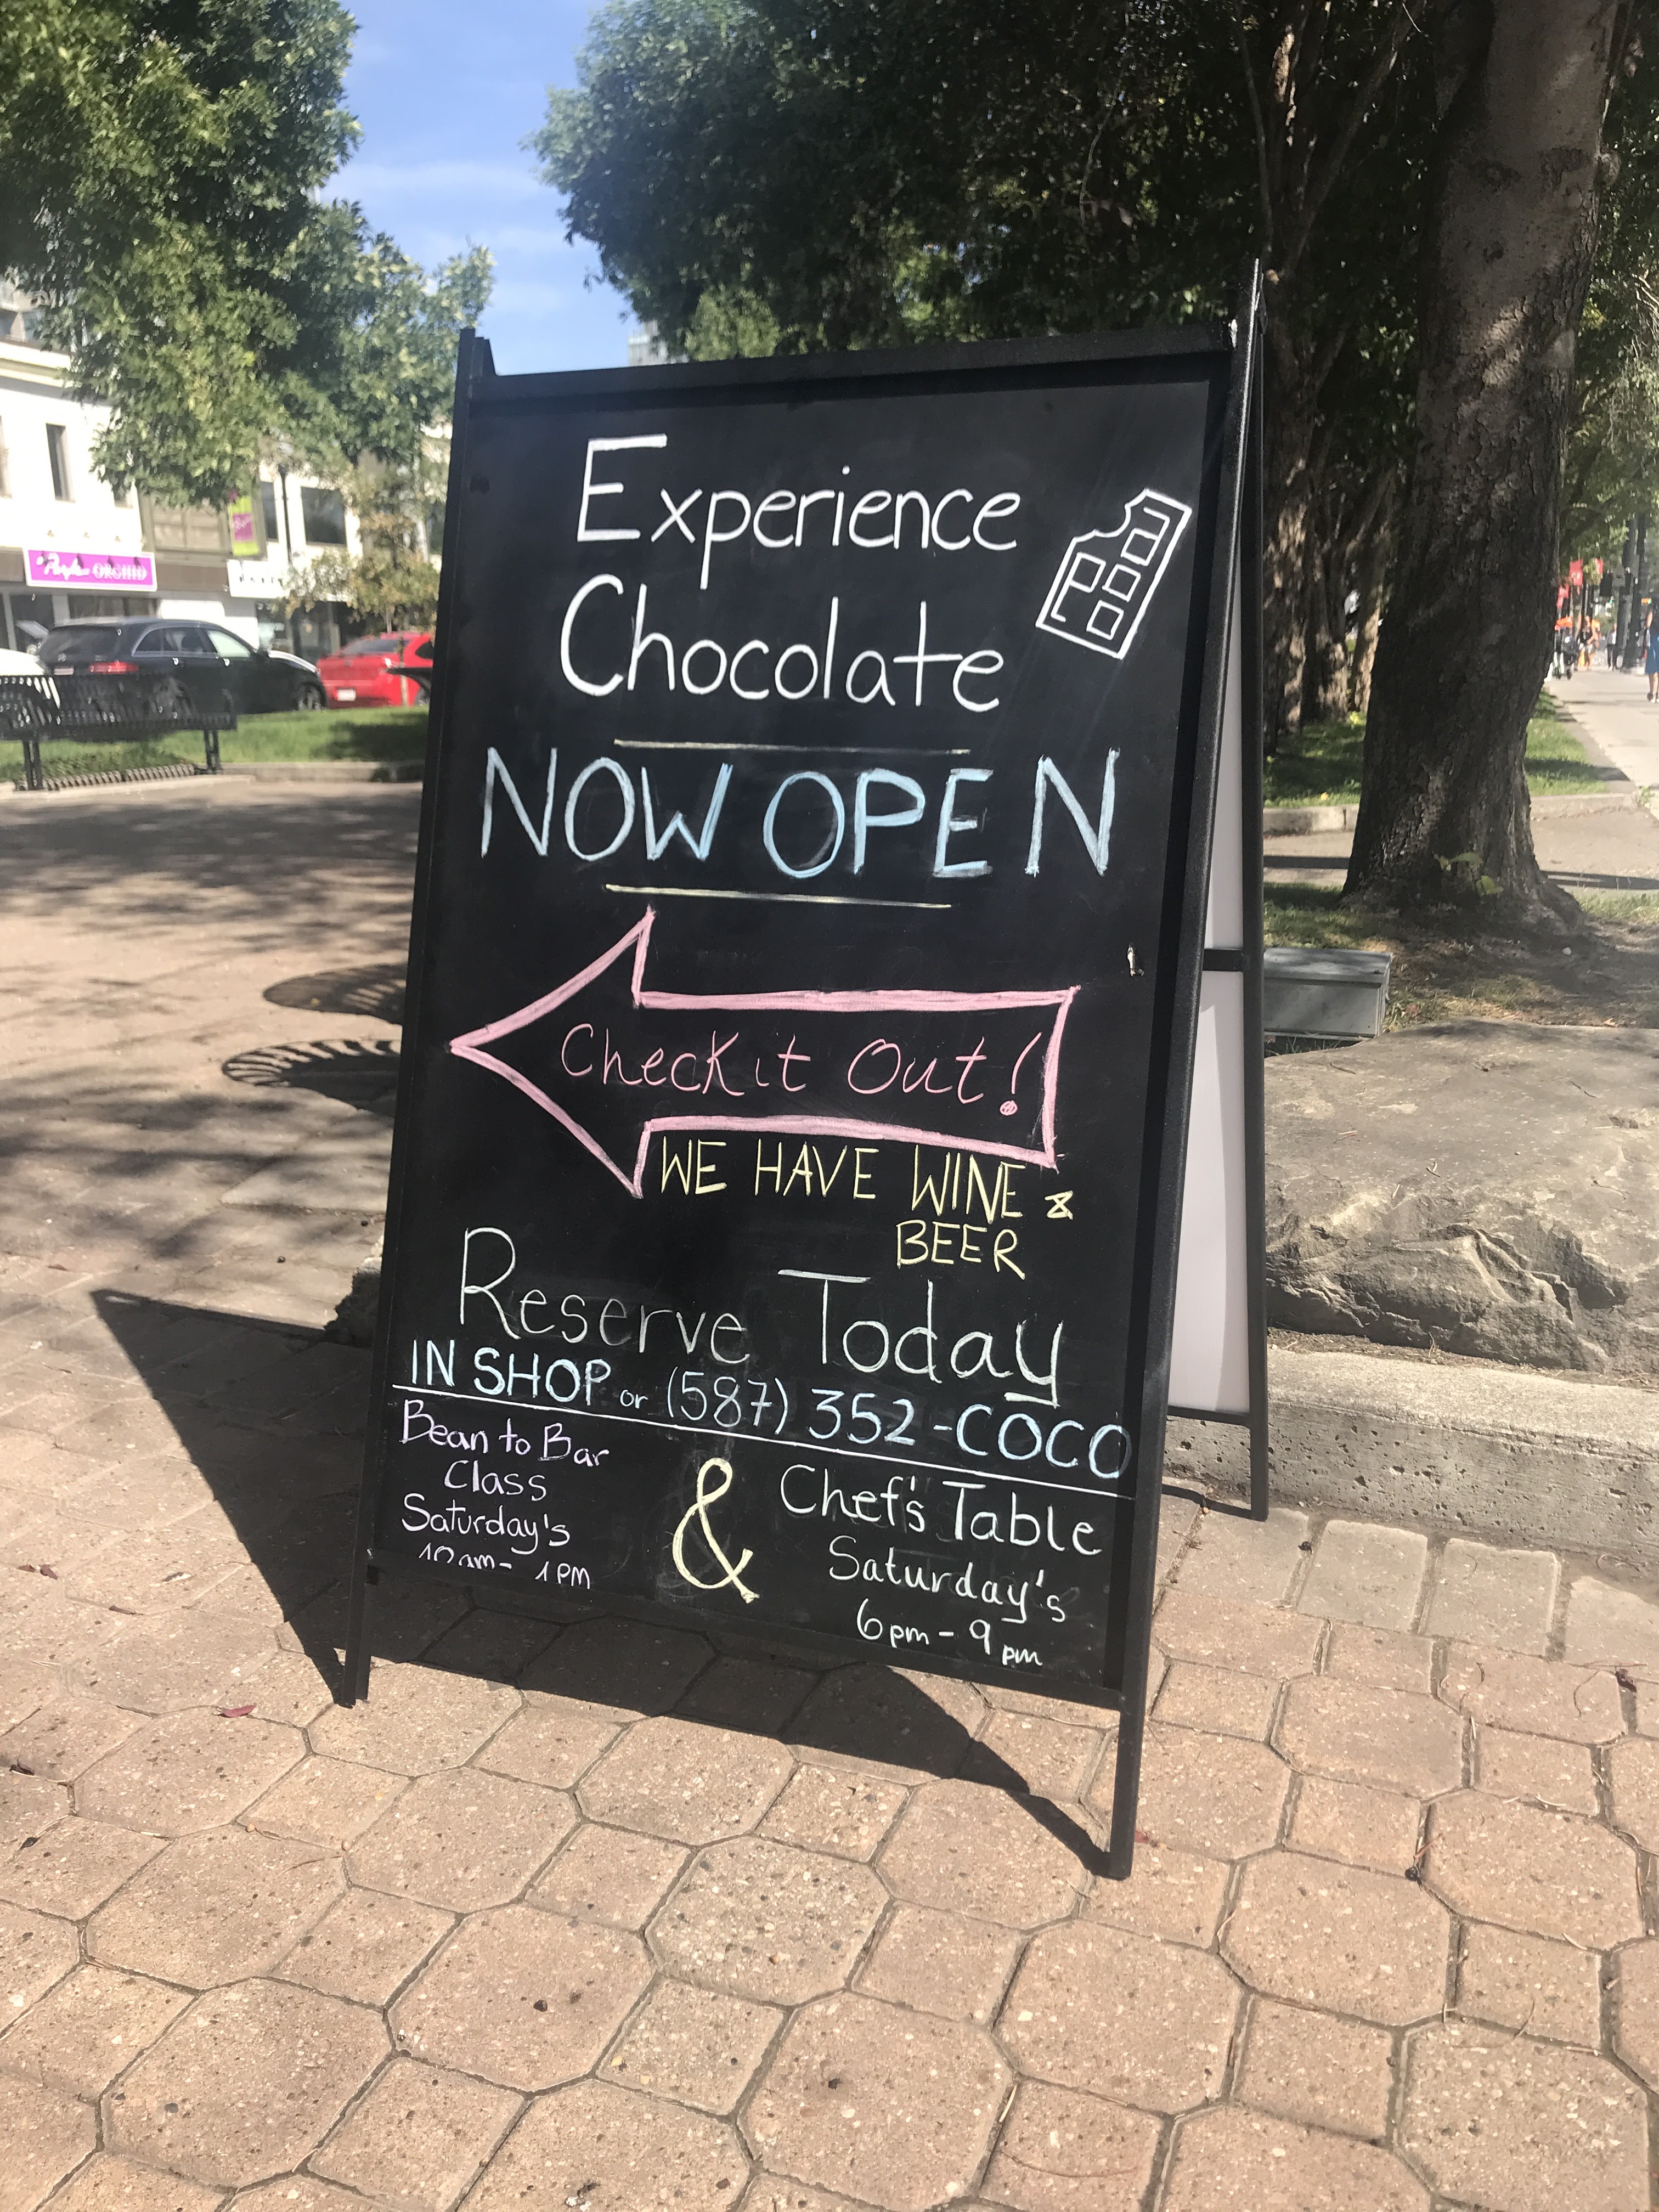 Experience
Chocolate
NOW OPEN
Check it Out!
WE HAVE WINE &
BEER
Reserve Today
IN SHOP or (587) 352-COCO
Bean to Bar
Class
Saturday's
10am- 1PM
&
Chef's Table
Saturday's
6pm - 9pm
ORCHID